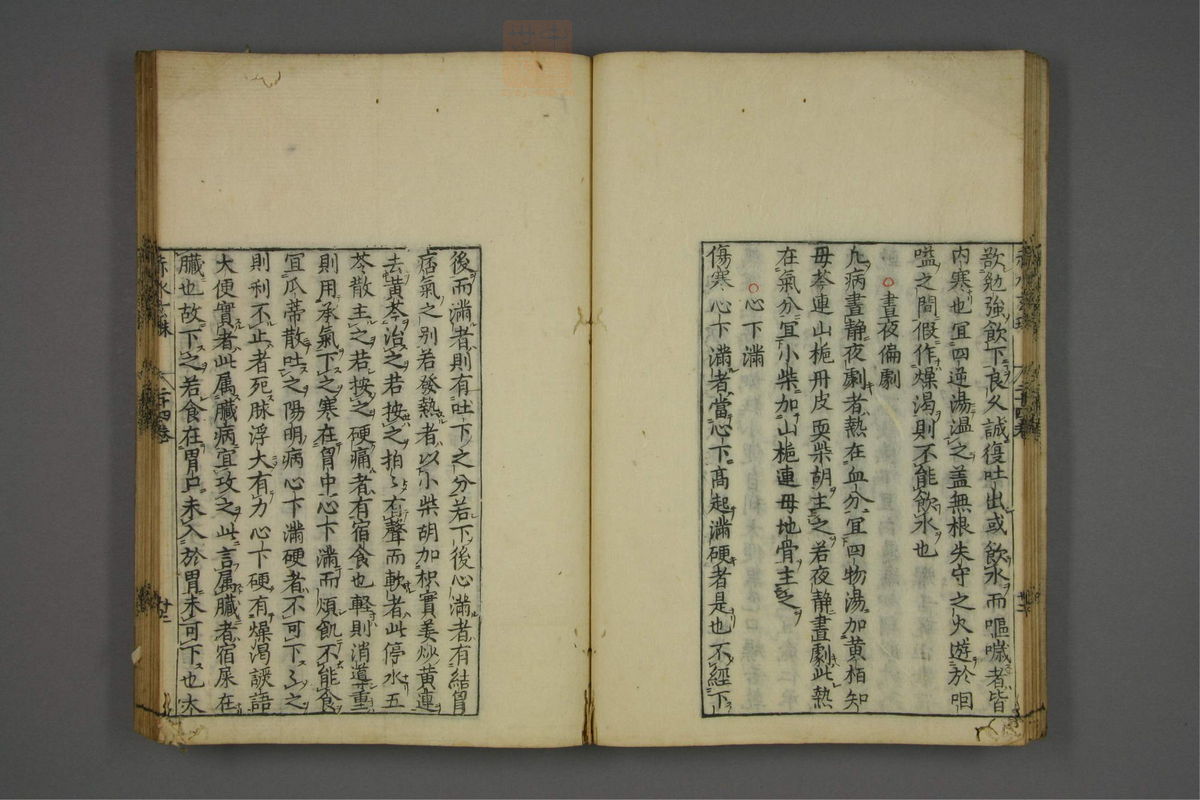 歆勉強飲下良久誠復吐出或飲水而嘔噦者皆
内寒也宜四逆湯温之盖無根失守之火遊於咽
嗌之間假作燥渴則不能飲水也
晝夜偏劇
凡病晝静夜劇者熱在血分宜四物湯加黄栢知
母芩連山梔丹皮更柴胡主之若夜静晝劇此熱
在氣分宜小柴加山梔連母地骨主之
心下滿
傷寒心下滿者當心下高起滿硬者是也不經下
後而滿者則有吐下之分若下後心滿者有結胷
痞氣之别若發熱者以小柴胡加枳實姜炒黄連
去黄芩治之若按之拍〻有聲而軟者此停水五
苓散主之若按之硬痛者有宿食也軽則消導重
則用承氣下之寒在胷中心下滿而煩飢不能食
宜瓜蒂散吐之陽明病心下滿硬者不可下〻之
則利不止者死脉浮大有力心下硬有燥渴譫語
大便實者此属臓病宜攻之此言属臓者宿屎在
臓也故下之若食在胃口未入於胃未可下也太